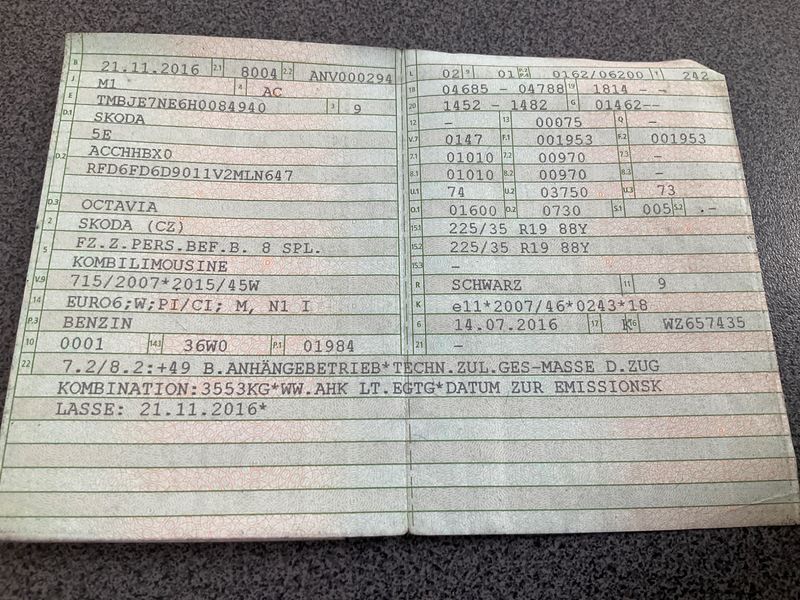 B 21.11.2016 2.1 8004 2.2 ANV000294
J M1 4 AC
E TMBJE7NE6H0084940 3 9
D.1 SKODA
5E
D.2 ACCHHBX0
RFD6FD6D9011V2MLN647
D.3 OCTAVIA
2 SKODA (CZ)
5 FZ.Z.PERS.BEF.B. 8 SPL.
KOMBILIMOUSINE
V.9 715/2007*2015/45W
14 EURO6;W;PI/CI; M, N1 I
P.3 BENZIN
10 0001 14.1 36W0 P.1 01984
L 02 9 01 P.2 P.4 0162/06200 T 242
18 04685 - 04788 19 1814 - -
20 1452 - 1482 G 01462--
12 - 13 00075 Q -
V.7 0147 F.1 001953 F.2 001953
7.1 01010 7.2 00970 7.3 -
8.1 01010 8.2 00970 8.3 -
U.1 74 U.2 03750 U.3 73
O.1 01600 O.2 0730 S.1 005 S.2 .-
15.1 225/35 R19 88Y
15.2 225/35 R19 88Y
15.3 -
R SCHWARZ 11 9
K e11*2007/46*0243*18
6 14.07.2016 17 K 16 WZ657435
21 -
22 7.2/8.2:+49 B.ANHÄNGEBETRIEB*TECHN.ZUL.GES-MASSE D.ZUG
KOMBINATION:3553KG*WW.AHK LT.EGTG*DATUM ZUR EMISSIONSK
LASSE: 21.11.2016*